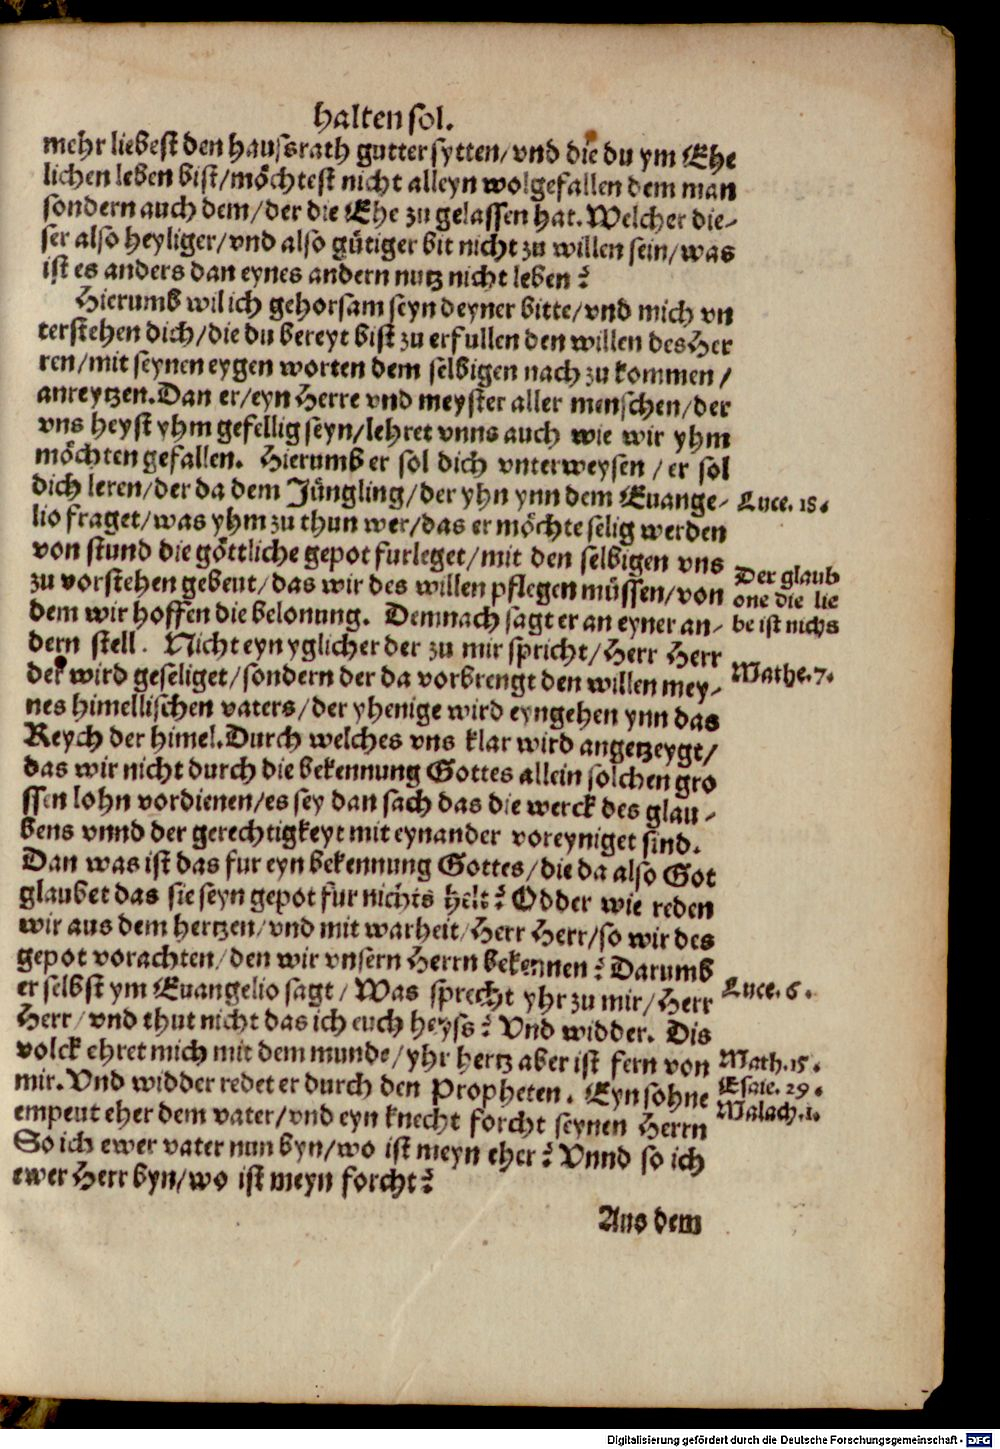 halten sol.
mehr liebest den haussrath gutter sytten/vnd die du ym Ehe
lichen leben bist/möchtest nicht alleyn wolgefallen dem man
sondern auch dem/der die Ehe zu gelassen hat. Welcher die-
ser also heyliger/vnd also gütiger bit nicht zu willen sein/was
ist es anders dan eynes andern nutz nicht leben?
Hierumb wil ich gehorsam seyn deyner bitte/vnd mich vn
terstehen dich/die du bereyt bist zu erfullen den willen des Her
ren/mit seynen eygen worten dem selbigen nach zu kommen/
anreytzen. Dan er/eyn Herre vnd meyster aller menschen/der
vns heyst yhm gefellig seyn/lehret vnns auch wie wir yhm
möchten gefallen. Hierumb er sol dich vnterweysen/er sol
dich leren/der da dem Jüngling/der yhn ynn dem Euange-
Luce. 18.
lio fraget/was yhm zu thun wer/das er möchte selig werden
von stund die göttliche gepot furleget/mit den selbigen vns
zu vorstehen gebeut/das wir des willen pflegen müssen/von
dem wir hoffen die belonung. Demnach sagt er an eyner an-
Der glaub
one die lie
be ist nichs
dern stell. Nicht eyn yglicher der zu mir spricht/Herr Herr
der wird geseliget/sondern der da vorbrengt den willen mey-
Mathe. 7.
nes himellischen vaters/der yhenige wird eyngehen ynn das
Reych der himel. Durch welches vns klar wird angetzeygt/
das wir nicht durch die bekennung Gottes allein solchen gro
ssen lohn vordienen/es sey dan sach das die werck des glau-
bens vnnd der gerechtigkeyt mit eynander voreyniget sind.
Dan was ist das fur eyn bekennung Gottes/die da also Got
glaubet das sie seyn gepot fur nichts helt? Odder wie reden
wir aus dem hertzen/vnd mit warheit/Herr Herr/so wir des
gepot vorachten/den wir vnsern Herrn bekennen? Darumb
er selbst ym Euangelio sagt/Was sprecht yhr zu mir/Herr
Luce. 6.
Herr/vnd thut nicht das ich euch heyss? Vnd widder. Dis
volck ehret mich mit dem munde/yhr hertz aber ist fern von
Math. 15.
mir. Vnd widder redet er durch den Propheten. Eyn sohne
Esaie. 29.
empeut eher dem vater/vnd eyn knecht forcht seynen Herrn
Malach. 1.
So ich ewer vater nun byn/wo ist meyn eher? Vnnd so ich
ewer Herr byn/wo ist meyn forcht?
Aus dem
Digitalisierung gefördert durch die Deutsche Forschungsgemeinschaft - DFG